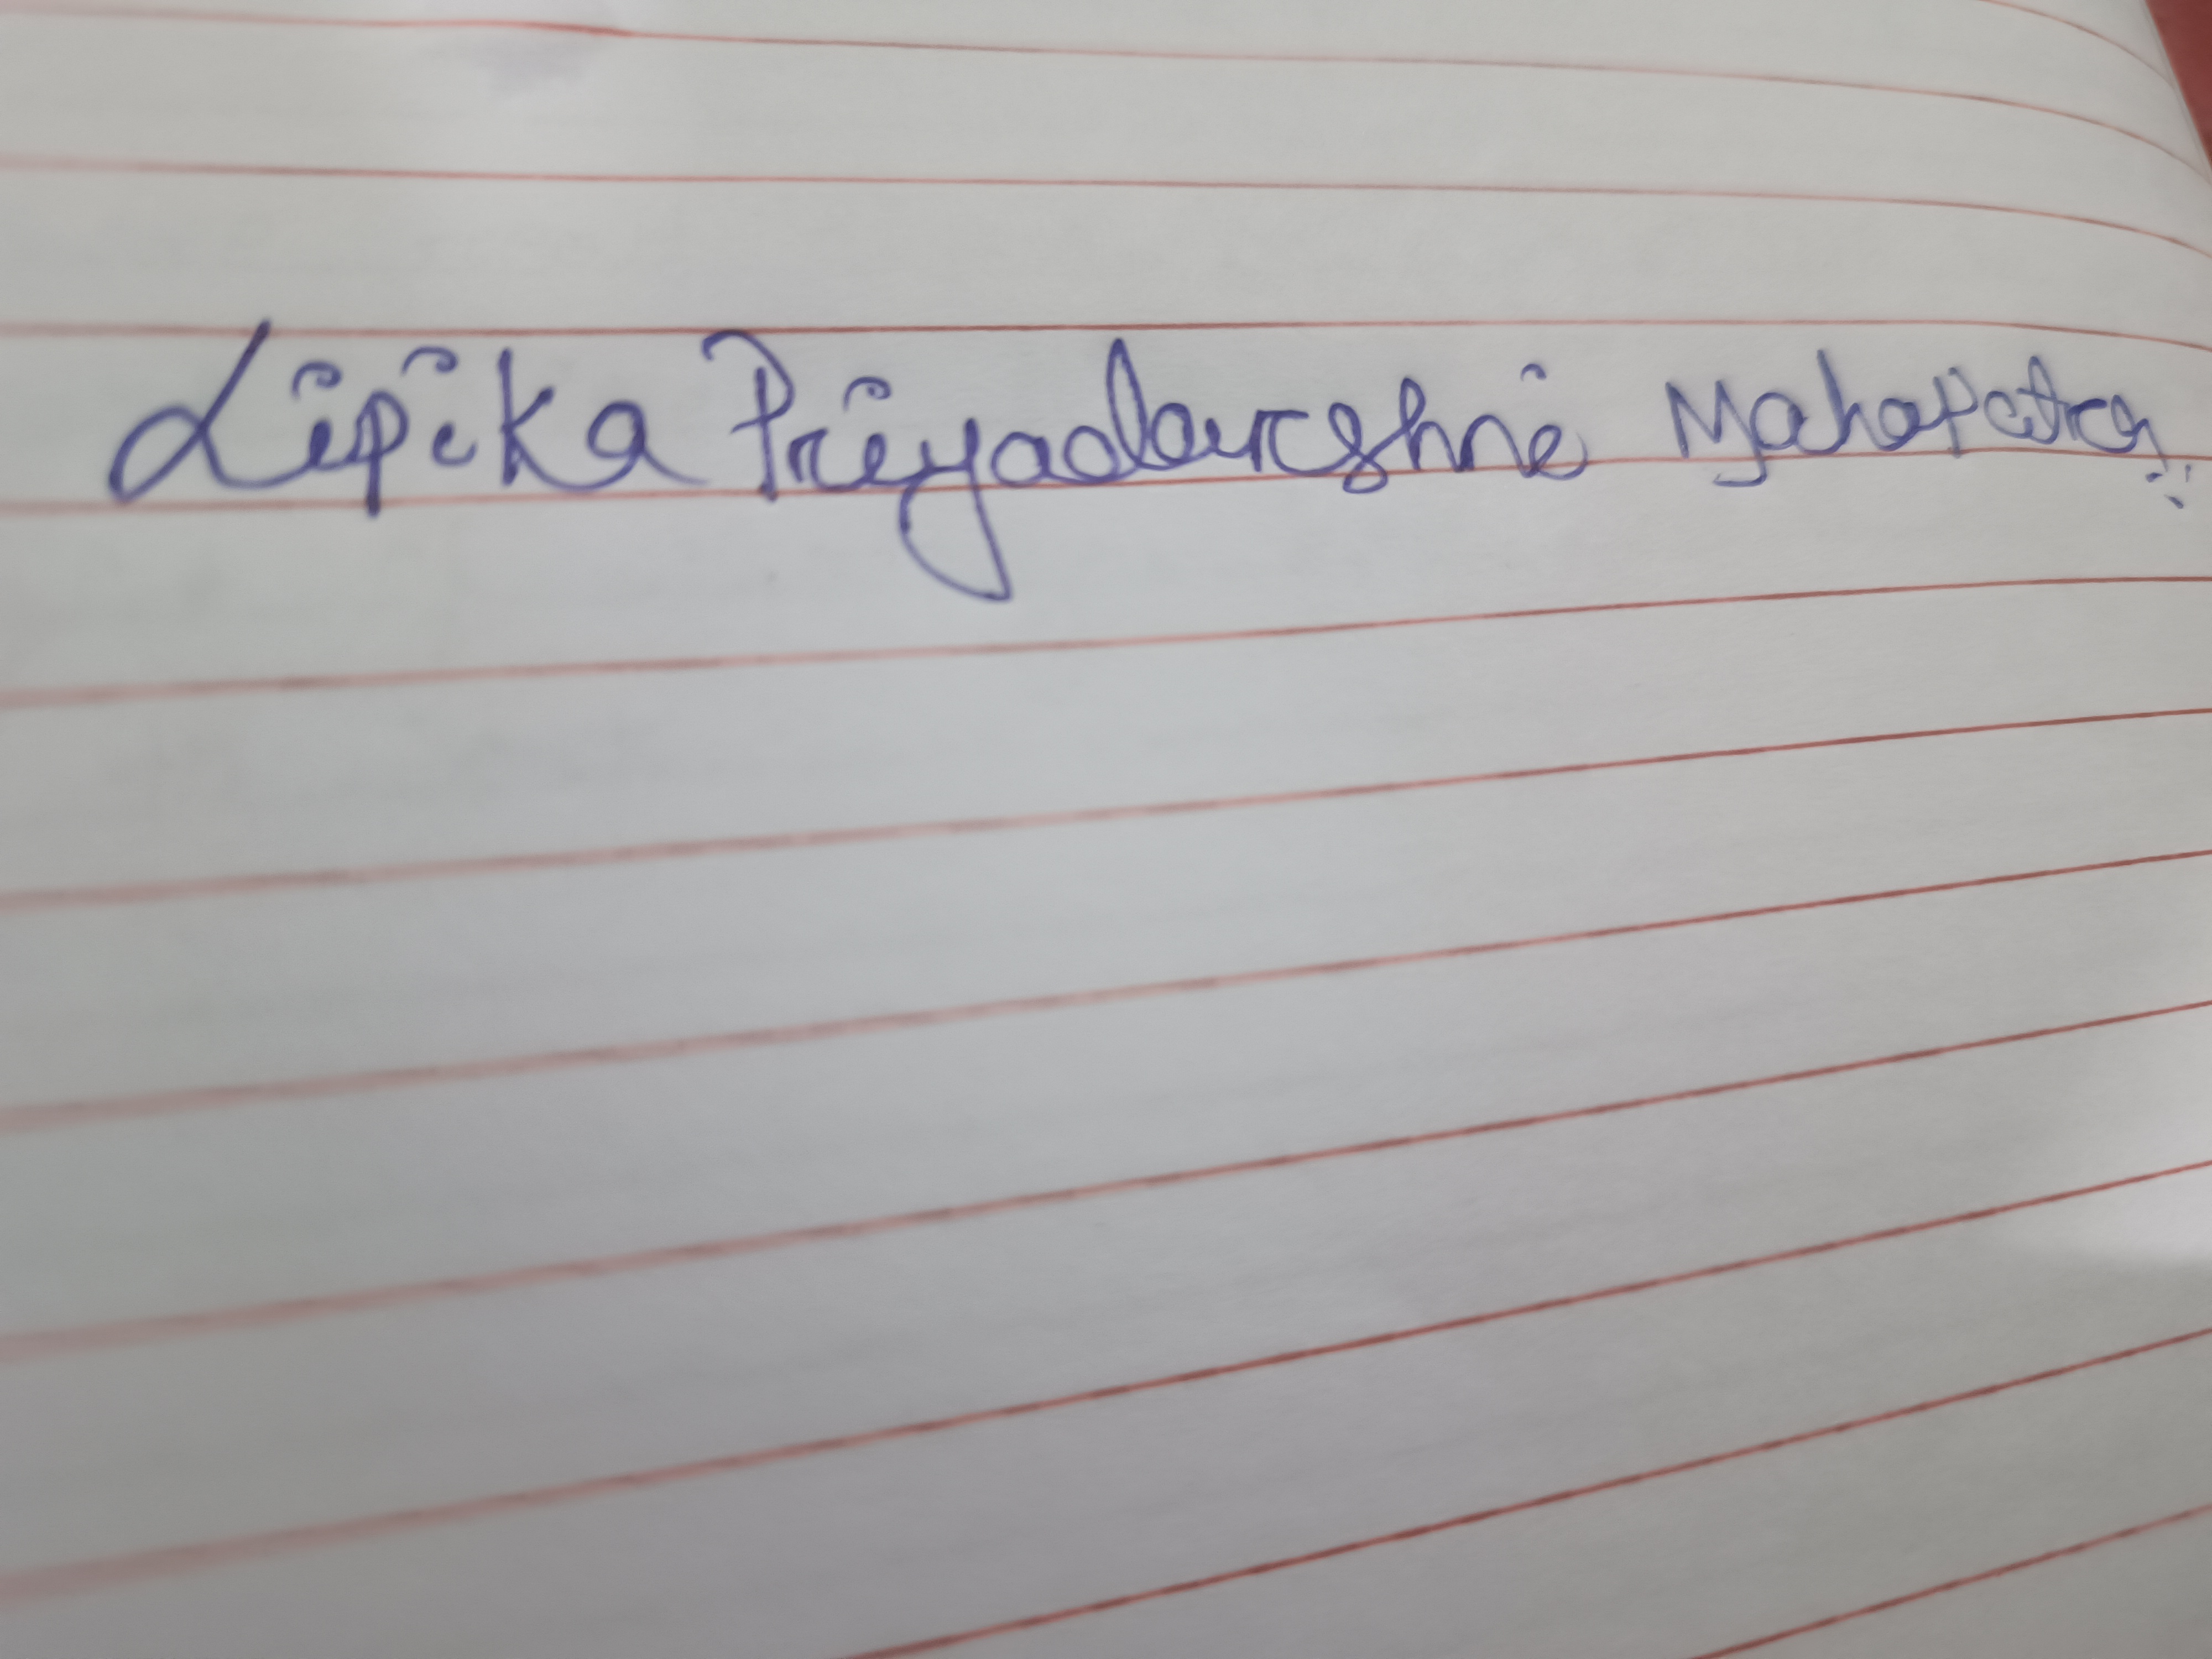 Lipika Priyadarshni Mahapatra